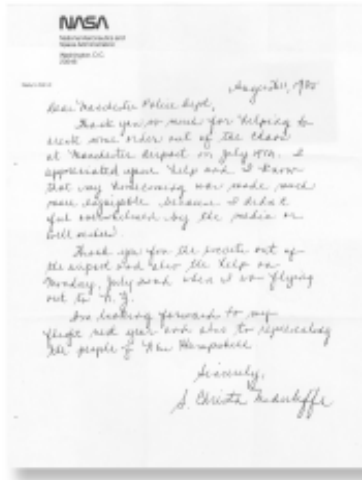 NASA
National Aeronautics and
Space Administration
Washington, D.C.
20546
August 11, 1985
Dear Manchester Police Dept,
Thank you so much for helping to
create some order out of the chaos
at Manchester Airport on July 19th. I
appreciated your help and I know
that my homecoming was made much
more enjoyable because I didn't
feel overwhelmed by the media or
well wishers.
Thank you for the escorts out of
the airport and also the help on
Monday, July 22nd when I was flying
out to N.J.
I'm looking forward to my
flight next year and also to representing
the people of New Hampshire.
Sincerely,
S. Christa McAuliffe